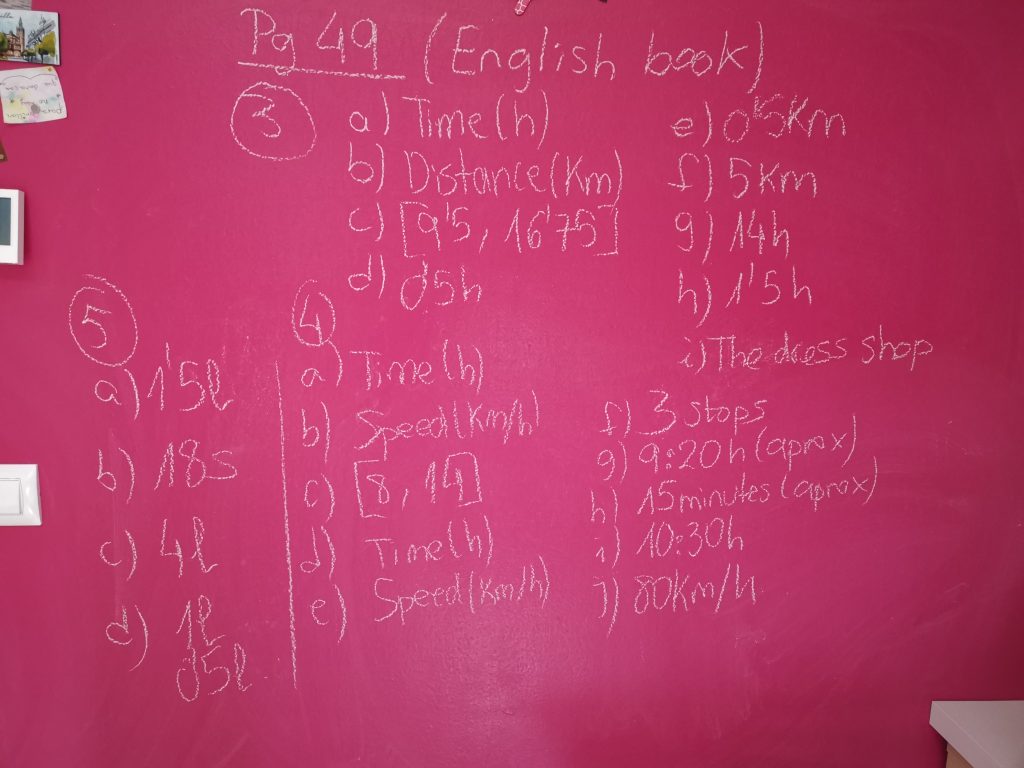 Pg 49 (English book)
3
a) Time (h)
b) Distance (Km)
c) [9'5, 16'75]
d) 0'5h
e) 0'5Km
f) 5 km
g) 14h
h) 1'5h
i) The dress shop
5
a) 1'5l
b) 18s
c) 4l
d) 1l
0'5l
4
a) Time (h)
b) Speed (Km/h)
c) [8, 14]
d) Time (h)
e) Speed (Km/h)
f) 3 stops
g) 9:20h (aprox)
h) 15 minutes (aprox)
i) 10:30h
j) 80Km/h